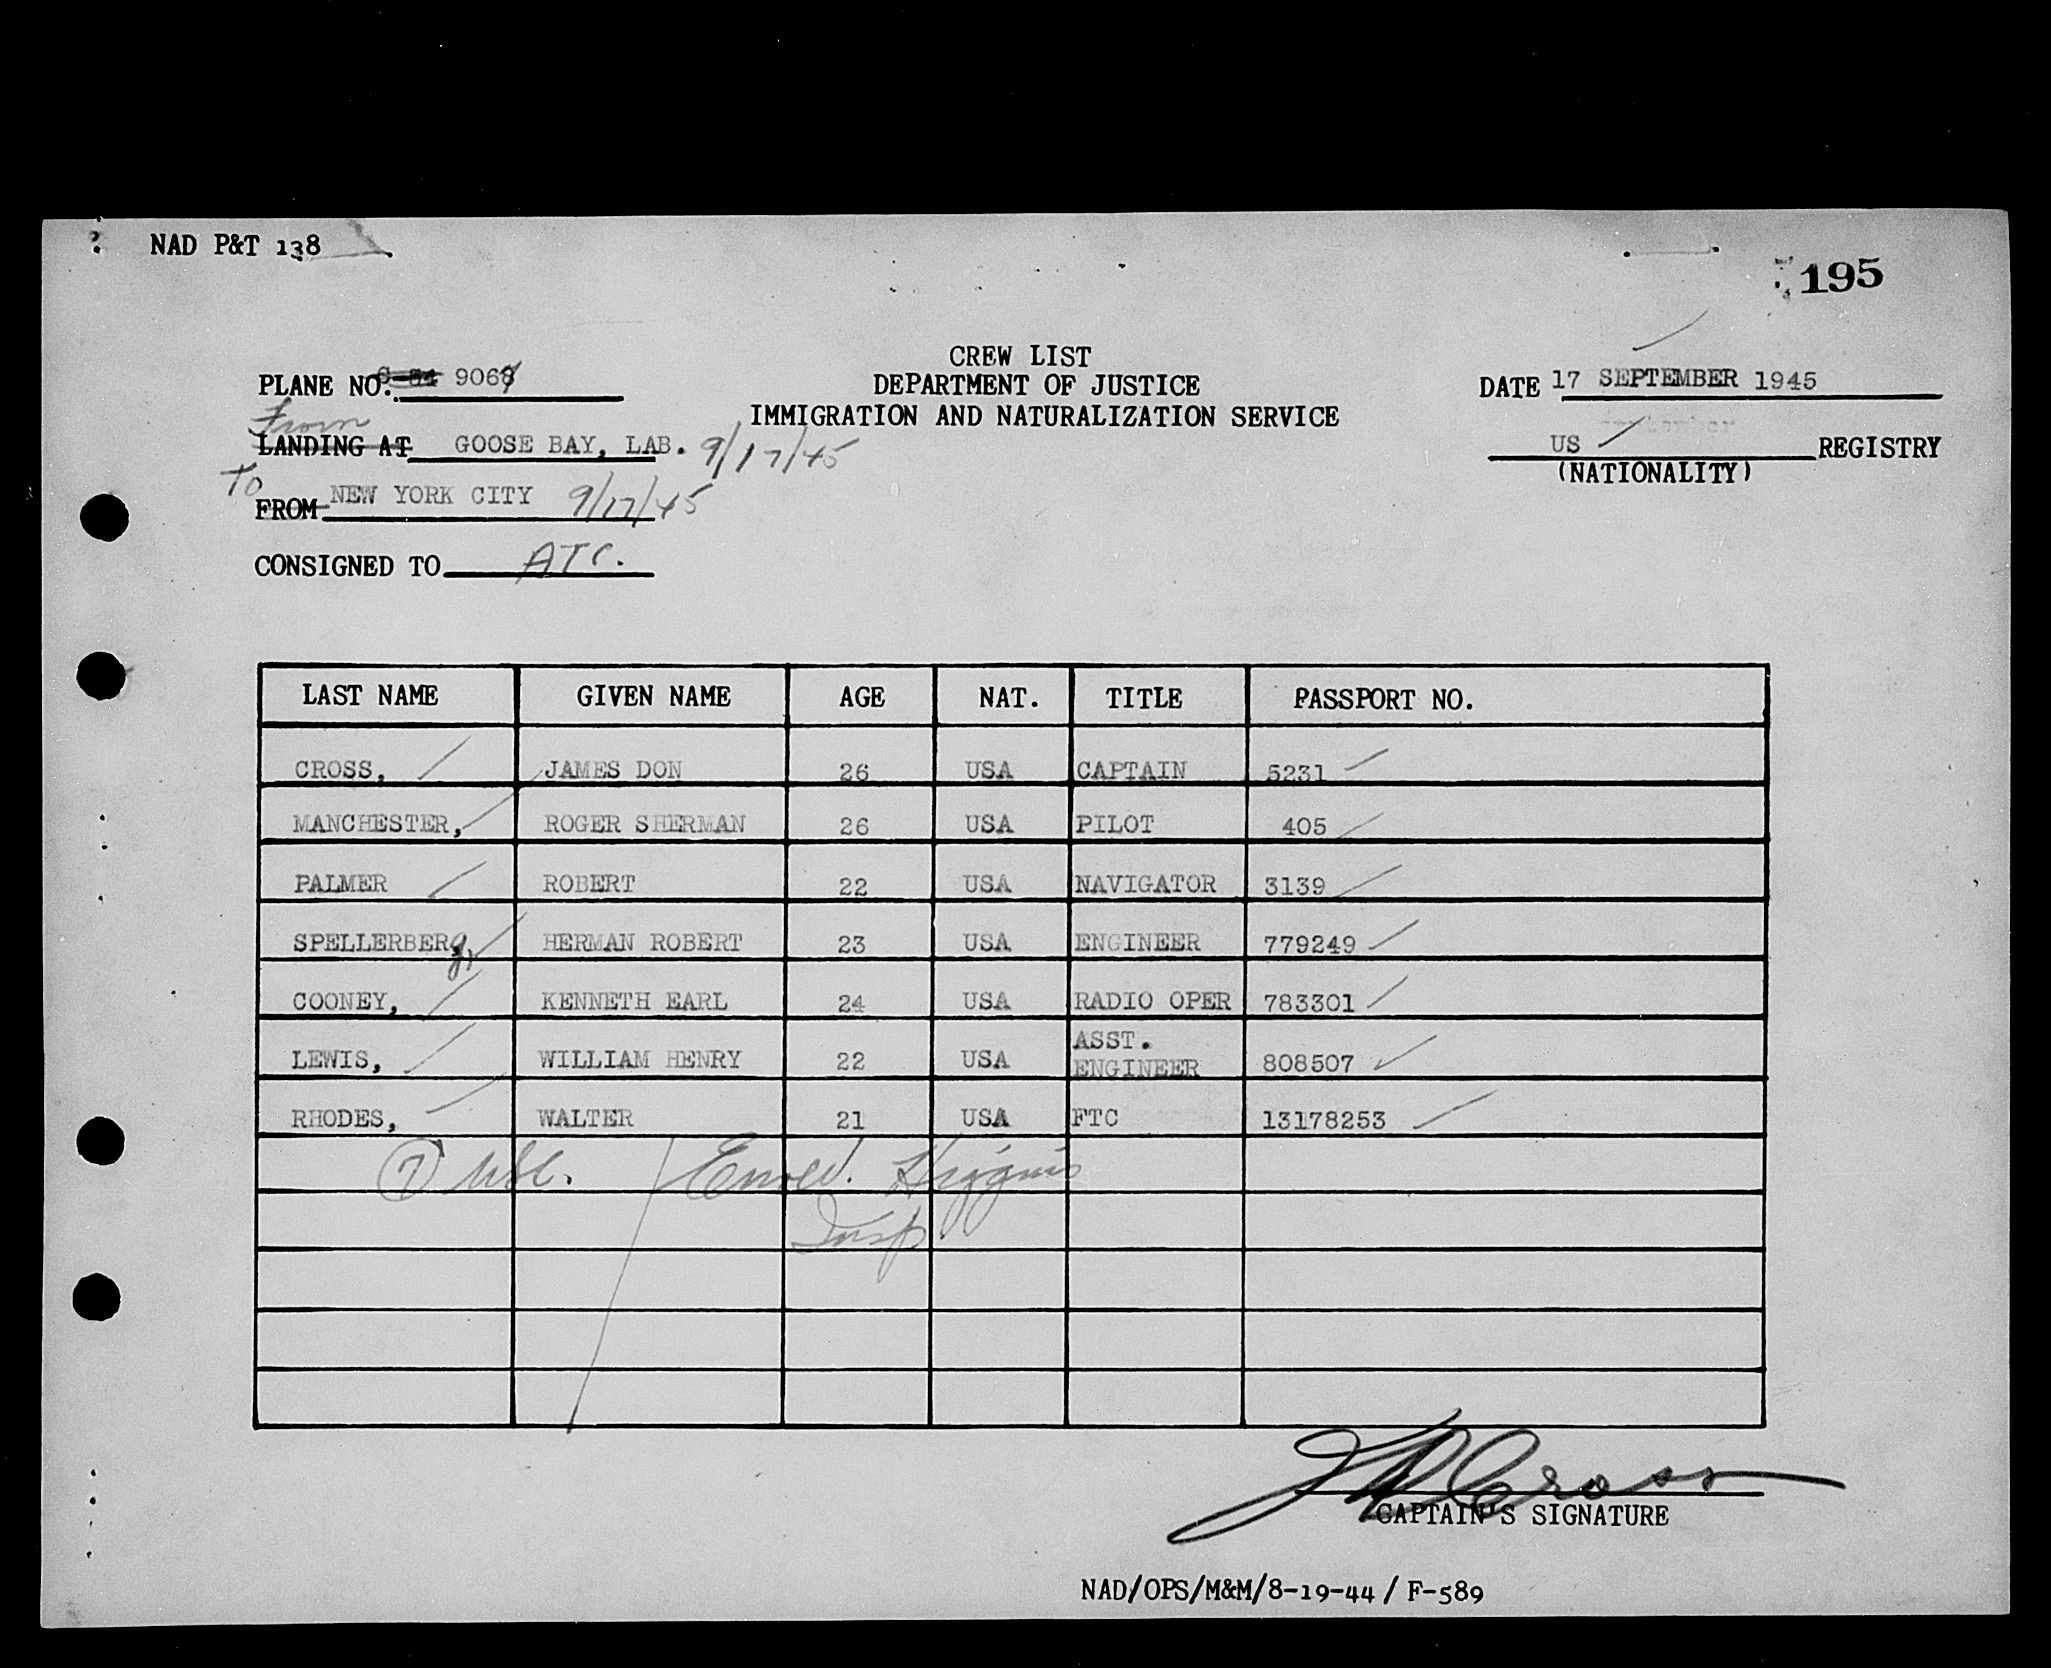 NAD P&T 138
195
CREW LIST
PLANE NO. C-54 9068
DEPARTMENT OF JUSTICE
DATE 17 SEPTEMBER 1945
IMMIGRATION AND NATURALIZATION SERVICE
From
LANDING AT GOOSE BAY, LAB. 9/17/45
US REGISTRY
(NATIONALITY)
To
FROM NEW YORK CITY 9/17/45
CONSIGNED TO ATC.
LAST NAME GIVEN NAME AGE NAT. TITLE PASSPORT NO.
CROSS, JAMES DON 26 USA CAPTAIN 5231
MANCHESTER, ROGER SHERMAN 26 USA PILOT 405
PALMER ROBERT 22 USA NAVIGATOR 3139
SPELLERBERg, HERMAN ROBERT 23 USA ENGINEER 779249
COONEY, KENNETH EARL 24 USA RADIO OPER 783301
LEWIS, WILLIAM HENRY 22 USA ASST. ENGINEER 808507
RHODES, WALTER 21 USA FTC 13178253
(7) USC. Higgins
Insp
J D Cross
CAPTAIN'S SIGNATURE
NAD/OPS/M&M/8-19-44 / F-589